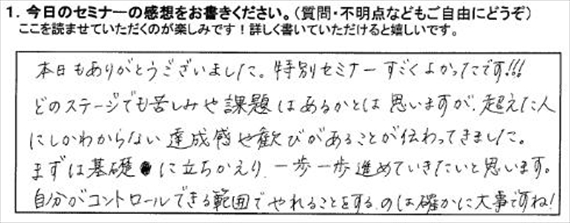 1. 今日のセミナーの感想をお書きください。（質問・不明点などもご自由にどうぞ）
ここを読ませていただくのが楽しみです！詳しく書いていただけると嬉しいです。
本日もありがとうございました。特別セミナーすごくよかったです!!!
どのステージでも苦しみや課題はあるかとは思いますが、超えた人
にしかわからない達成感や歓びがあることが伝わってきました。
まずは基礎に立ちかえり、一歩一歩進めていきたいと思います。
自分がコントロールできる範囲でやれることをする、のは確かに大事ですね!